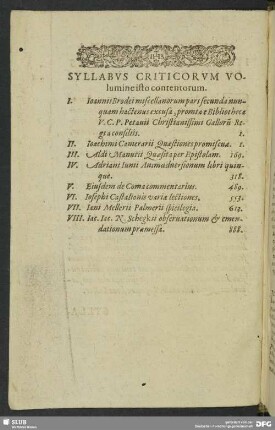 SYLLABVS CRITICORVM VO-
lumine isto contentorum.
I. Ioannis Brodei miscellanorum pars secunda nun-
quam hactenus excusa, prompta e Bibliotheca
V. C. P. Petauii Christianissimi Galloru Re-
gi a consiliis. 1.
II. Ioachimi Camerarii Quaestiones promiscua. 1.
III. Aldi Manutii Quaesita per Epistolam. 169.
IV. Adriani Iunii Animaduersionum libri quin-
que. 318.
V. Eiusdem de Coma commentarius. 489.
VI. Iosephi Castalionis varia lectiones. 553.
VII. Iani Mellerii Palmerii spicilegia.
VIII. Iac. Schegkii obseruationum & emen-
dationum praemessa. 888.
SLUB
DFG